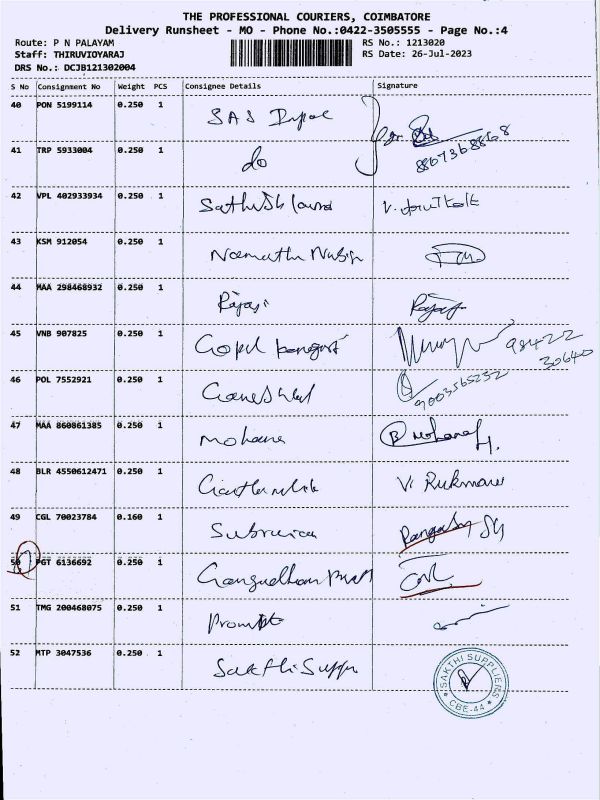 THE PROFESSIONAL COURIERS, COIMBATORE
Delivery Runsheet - MO - Phone No.:0422-3505555 - Page No.:4
Route: P N PALAYAM
RS No.: 1213020
Staff: THIRUVIOYARAJ
RS Date: 26-Jul-2023
DRS No.: DCJB121302004
S No Consignment No Weight PCS Consignee Details Signature
40 PON 5199114 0.250 1 SAS
8867368868
41 TRP 5933004 0.250 1 do
42 VPL 402933934 0.250 1
43 KSM 912054 0.250 1
44 MAA 298468932 0.250 1 Rajaji Rajaji
45 VNB 907825 0.250 1 Gopal
98422
30640
46 POL 7552921 0.250 1 Ganeshbal
9003565252
47 MAA 860861385 0.250 1 Mohana Mohana
48 BLR 4550612471 0.250 1 V. Rukmani
49 CGL 70023784 0.160 1
50 PGT 6136692 0.250 1
51 TMG 200468075 0.250 1 Prompt
52 MTP 3047536 0.250 1 Sakthi Supp
SAKTHI SUPPLIERS
CBE-44